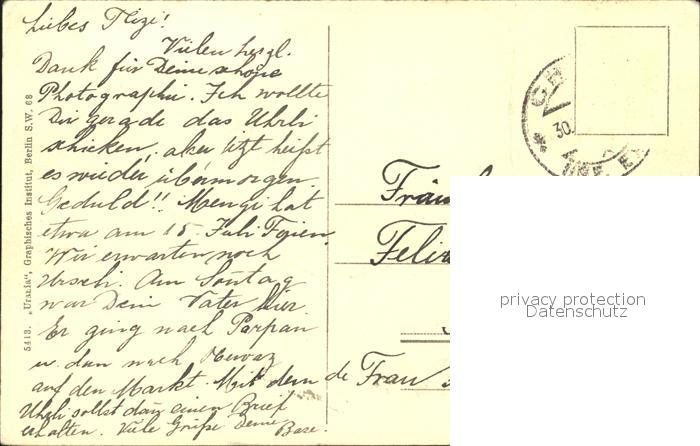 Liebes Flizi!
Vielen herzl.
Dank für Deine schöne
Photographie. Ich wollte
Dir gerade das Uhrli
schicken, aber jetzt heißt
es wieder übermorgen
Geduld!! Mengi hat
etwa am 15. Juli Ferien,
Wir erwarten noch
Urschi. Am Sontag
war Dein Vater hier.
Er ging nach Parpan
u. dan nach
auf den Markt. Mit dem
Uhrli sollst dan einen Brief
erhalten. Viele Grüße Deine
Base.
5413. „Urania", Graphisches Institut, Berlin S.W. 68
30.
Fräu
Feliz
de Frau
privacy protection
Datenschutz